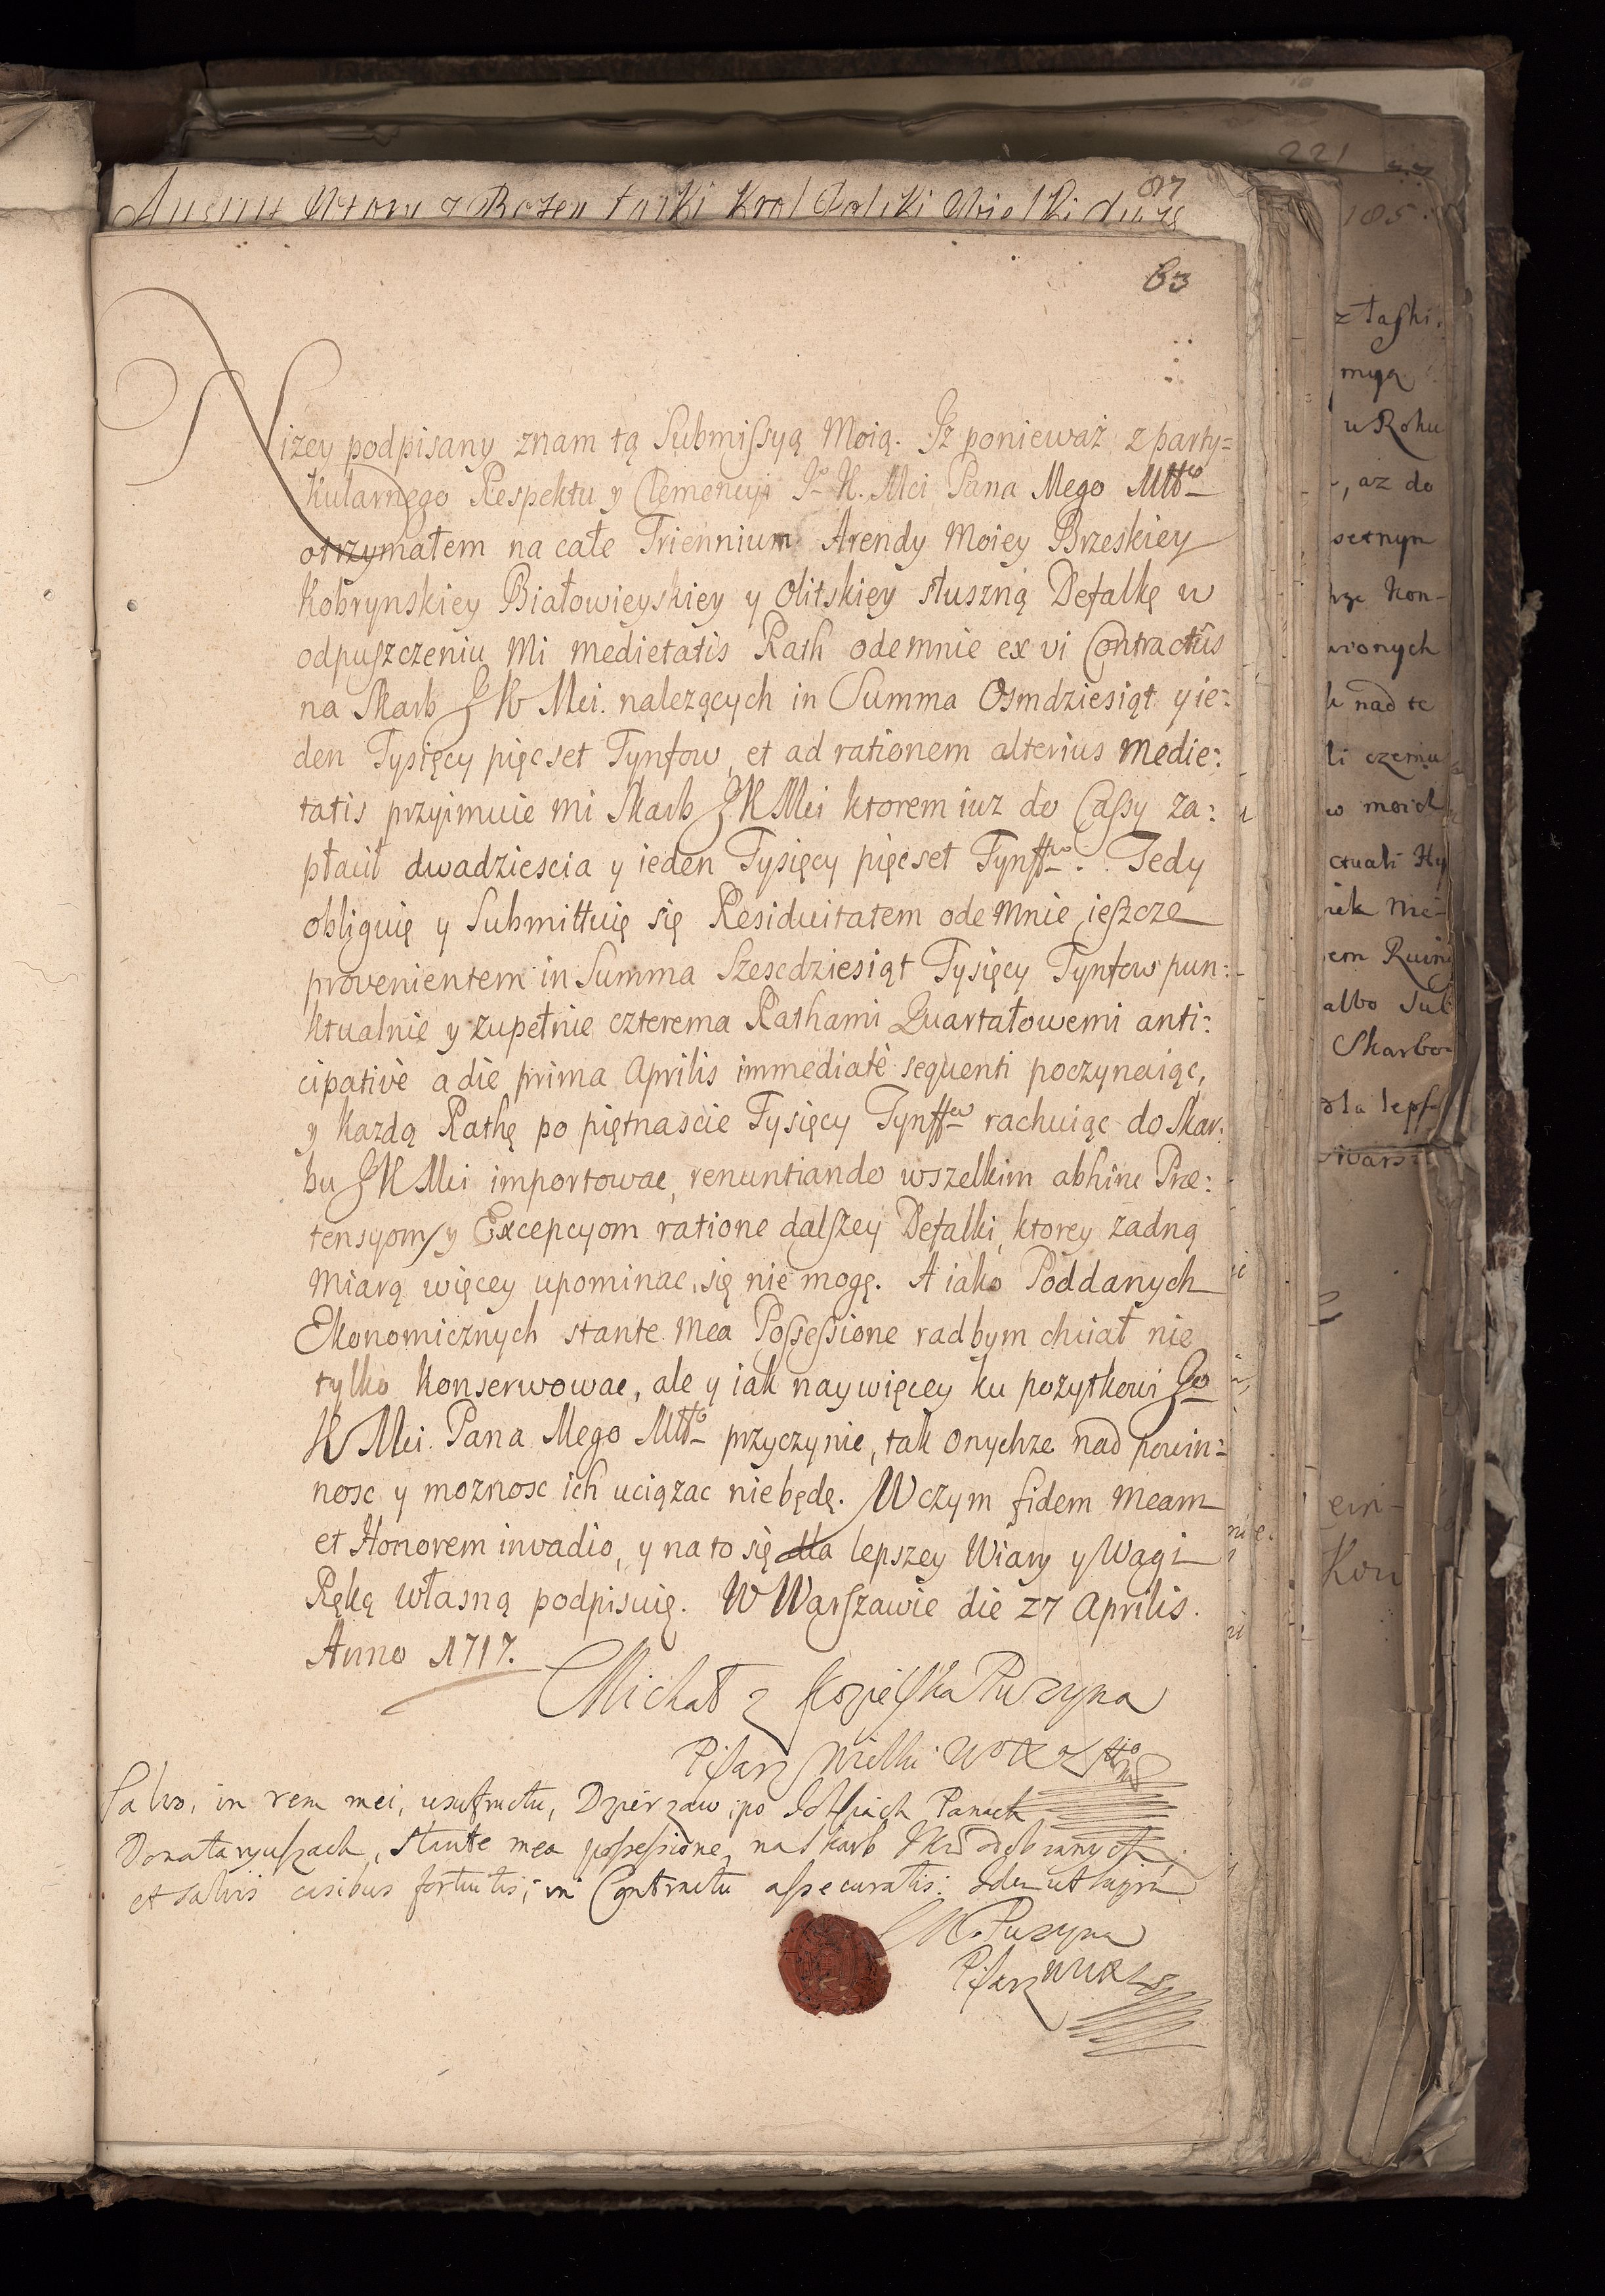 87
83
Niżey podpisany znam tą Submissyą Moią. Iż ponieważ z party=
kularnego Respektu y Clemencyi Jo K. Mci Pana Mego Mttgo
otrzymałem na całe Triennium Arendy Moiey Brzeskiey
Kobrynskiey Białowieyskiey y Olitskiey słuszną Defalkę w
odpuszczeniu Mi medietatis Rath odemnie ex vi Contractûs
na Skarb JK Mci. nalezących in Summa Osmdziesiąt y ie:
den Tysięcy pięcset Tynfow, et ad rationem alterius Medie:
tatis przyimuie mi Skarb JK Mci ktorem iuz do Cassy za:
płacił dwadziescia y ieden Tysięcy pięcset Tynffow. Tedy
obliguię y Submittuię się Residuitatem odemnie ieszcze
provenientem in Summa Szescdziesiąt Tysięcy Tynfow pun:
ktualnie y zupełnie czterema Rathami Quartałowemi anti:
cipativè a die prima Aprilis immediatè sequenti poczynaiąc,
y kazdą Rathę po piętnascie Tysięcy Tynffow rachuiąc do Skar:
bu JK Mci importowac, renuntiando wszelkim abhinc Præ:
tensyom y Excepcyom ratione dalszey Defalki, ktorey zadną
Miarą więcey upominac się nie mogę. A iako Poddanych
Ekonomicznych stante Mea Possessione radbym chciał nie
tylko konserwowac, ale y iak naywięcey ku pozytkowi Jo
K Mci. Pana Mego Mttgo przyczynic, tak onychze nad powin:
nosc y moznosc ich uciązac niebędę. W czym fidem Meam
et Honorem invadio, y na to się dla lepszey Wiary y Wagi
Ręką własną podpisuię. W Warszawie die 27 Aprilis.
Anno 1717.
Michał z Kozielska Puzyna
Pisarz Wielki
Salvo, in rem mei, usufructu, Dzierzaw, po Panach
Donataryuszach, stante mea possessione, na skarb
et salvis casibus fortuitis, in Contractu assecuratis:
M. Puzyna
Pisarz
221
185
z łaski
myą
u Roku
, az do
setnym
Kon-
wionych
nad te
li czemu
w moich
ctuali
albo
Skarbo-
dla lepſ